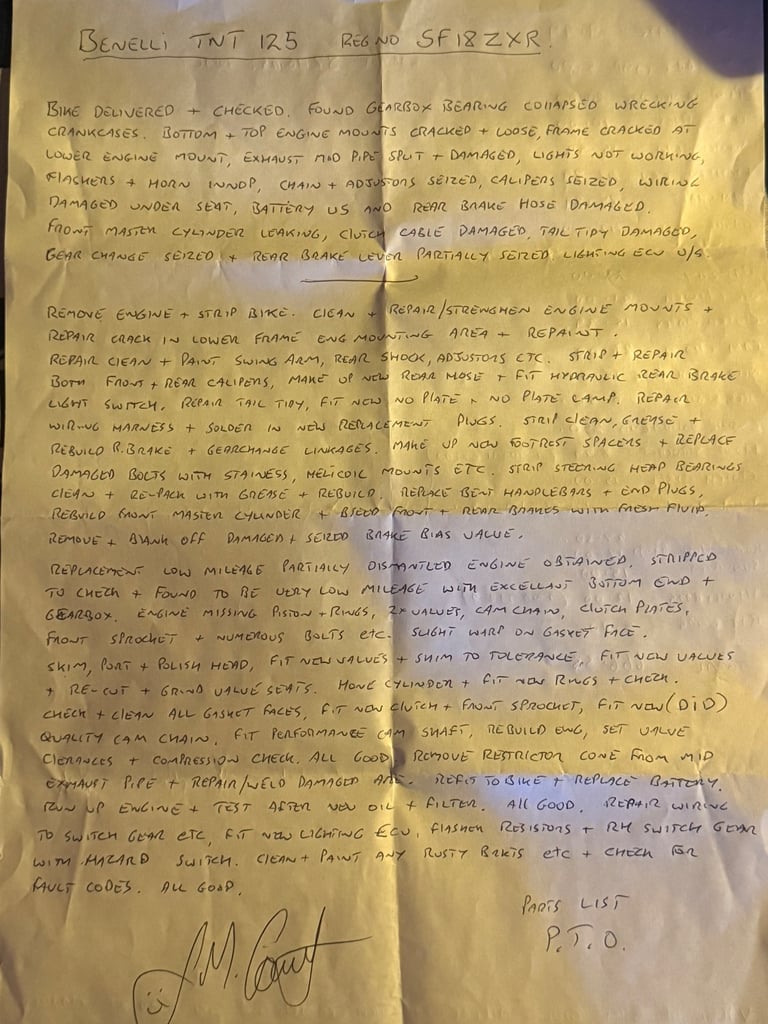 BENELLI TNT 125 REG NO SF18ZXR!
BIKE DELIVERED + CHECKED. FOUND GEARBOX BEARING COLLAPSED WRECKING
CRANKCASES. BOTTOM + TOP ENGINE MOUNTS CRACKED + LOOSE, FRAME CRACKED AT
LOWER ENGINE MOUNT, EXHAUST MID PIPE SPLIT + DAMAGED, LIGHTS NOT WORKING,
FLASHERS + HORN INNOP, CHAIN + ADJUSTORS SEIZED, CALIPERS SEIZED, WIRING
DAMAGED UNDER SEAT, BATTERY US AND REAR BRAKE HOSE DAMAGED.
FRONT MASTER CYLINDER LEAKING, CLUTCH CABLE DAMAGED, TAIL TIDY DAMAGED,
GEAR CHANGE SEIZED + REAR BRAKE LEVER PARTIALLY SEIZED. LIGHTING ECU U/S.
REMOVE ENGINE + STRIP BIKE. CLEAN + REPAIR/STRENGHEN ENGINE MOUNTS +
REPAIR CRACK IN LOWER FRAME ENG MOUNTING AREA + REPAINT.
REPAIR CLEAN + PAINT SWING ARM, REAR SHOCK, ADJUSTORS ETC. STRIP + REPAIR
BOTH FRONT + REAR CALIPERS, MAKE UP NEW REAR HOSE + FIT HYDRAULIC REAR BRAKE
LIGHT SWITCH. REPAIR TAIL TIDY, FIT NEW NO PLATE + NO PLATE LAMP. REPAIR
WIRING HARNESS + SOLDER IN NEW REPLACEMENT PLUGS. STRIP CLEAN, GREASE +
REBUILD R.BRAKE + GEARCHANGE LINKAGES. MAKE UP NEW FOOTREST SPACERS + REPLACE
DAMAGED BOLTS WITH STAINESS, HELICOIL MOUNTS ETC. STRIP STEERING HEAD BEARINGS
CLEAN + RE-PACK WITH GREASE + REBUILD. REPLACE BENT HANDLEBARS + END PLUGS,
REBUILD FRONT MASTER CYLINDER + BLEED FRONT + REAR BRAKES WITH FRESH FLUID.
REMOVE + BLANK OFF DAMAGED + SEIZED BRAKE BIAS VALVE.
REPLACEMENT LOW MILEAGE PARTIALLY DISMANTLED ENGINE OBTAINED. STRIPPED
TO CHECK + FOUND TO BE VERY LOW MILEAGE WITH EXCELLANT BOTTOM END +
GEARBOX. ENGINE MISSING PISTON + RINGS, 2x VALVES, CAM CHAIN, CLUTCH PLATES,
FRONT SPROCKET + NUMEROUS BOLTS etc. SLIGHT WARP ON GASKET FACE.
SKIM, PORT + POLISH HEAD, FIT NEW VALVES + SHIM TO TOLERANCE, FIT NEW VALVES
+ RE-CUT + GRIND VALVE SEATS. HONE CYLINDER + FIT NEW RINGS + CHECK.
CHECK + CLEAN ALL GASKET FACES, FIT NEW CLUTCH + FRONT SPROCKET, FIT NEW (DID)
QUALITY CAM CHAIN, FIT PERFORMANCE CAM SHAFT, REBUILD ENG, SET VALVE
CLERANCES + COMPRESSION CHECK. ALL GOOD. REMOVE RESTRICTOR CONE FROM MID
EXHAUST PIPE + REPAIR/WELD DAMAGED REFIT TO BIKE + REPLACE BATTERY.
RUN UP ENGINE + TEST AFTER NEW OIL + FILTER. ALL GOOD. REPAIR WIRING
TO SWITCH GEAR etc, FIT NEW LIGHTING ECU, FLASHER RESISTORS + RH SWITCH GEAR
WITH HAZARD SWITCH. CLEAN + PAINT ANY RUSTY BRKTS etc + CHECK FOR
FAULT CODES. ALL GOOD.
PARTS LIST
P.T.O.